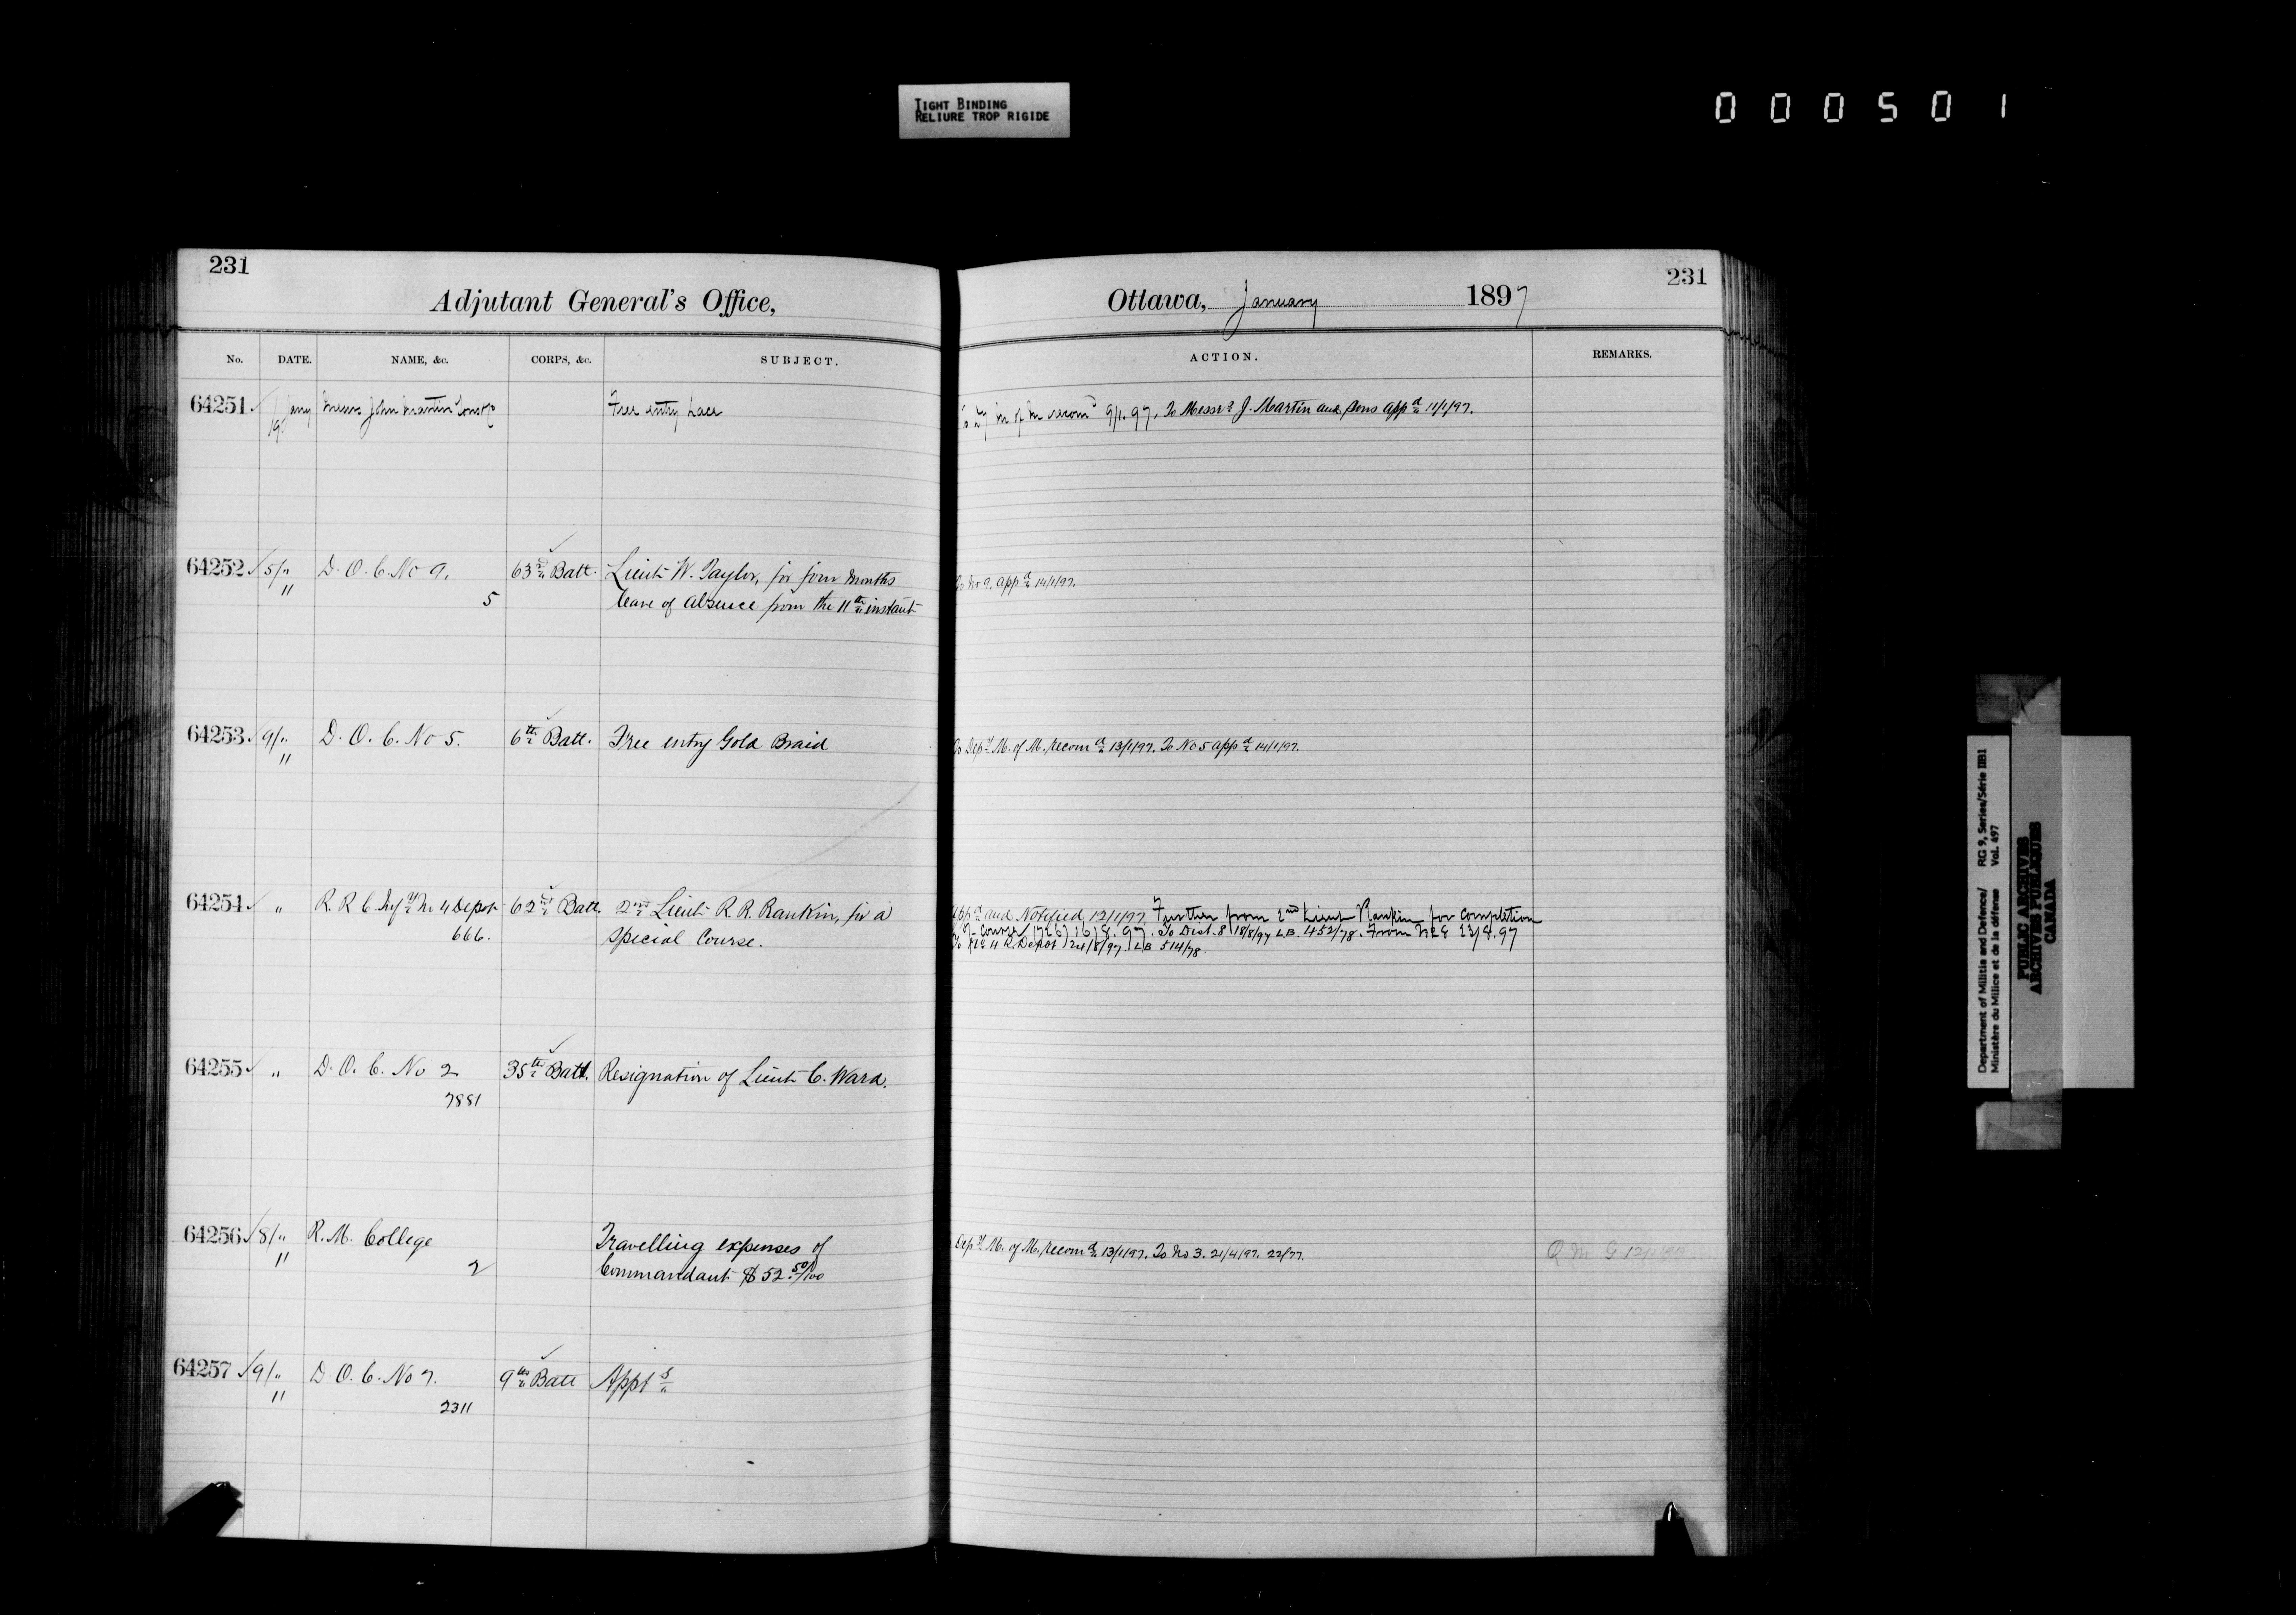 TIGHT BINDING
RELIURE TROP RIGIDE
000501
231
Adjutant General's Office,
No. DATE. NAME, &c. CORPS, &c. SUBJECT.
64251 Jany Messrs John Martin Sons & Co Free entry Lace
64252 5/" D.O.C. No 9. 63rd Batt. Lieut W. Taylor, for four months
" 5 leave of absence from the 11th instant
64253 9/" D.O.C. No 5. 6th Batt. Free entry Gold Braid
"
64254 " R.R.C. Infy No 4 Depot 62nd Batt. 2nd Lieut R.R. Rankin, for a
666. Special Course.
64255 " D.O.C. No 2 35th Batt. Resignation of Lieut C. Ward.
7881
64256 8/" R.M. College Travelling expenses of
" 2 Commandant $52 50/100
64257 9/" D.O.C. No 7. 9th Batt Appts
"
2311
231
Ottawa, January 1897
ACTION. REMARKS.
M of M recomd 9/1.97. To Messrs J. Martin and Sons appd 11/1/97.
To No 9. appd 14/1/97.
To Depy M. of M. recomd 13/1/97. To No 5 appd 14/1/97.
Appd and Notified 12/1/97. Further from 2nd Lieut Rankin for completion
of course 16/8.97. To Dist. 8 18/8/97 LB. 452/78. From No 8 23/8.97
To No 4 R. Depot 24/8/97. LB 514/78.
Depy M. of M. recomd 13/1/97. To No 3. 21/4/97. 22/77. Q M G 12/1/97
Department of Militia and Defence/ RG 9, Series/Série IIB1
Ministère du Milice et de la défense Vol. 497
PUBLIC ARCHIVES
ARCHIVES PUBLIQUES
CANADA